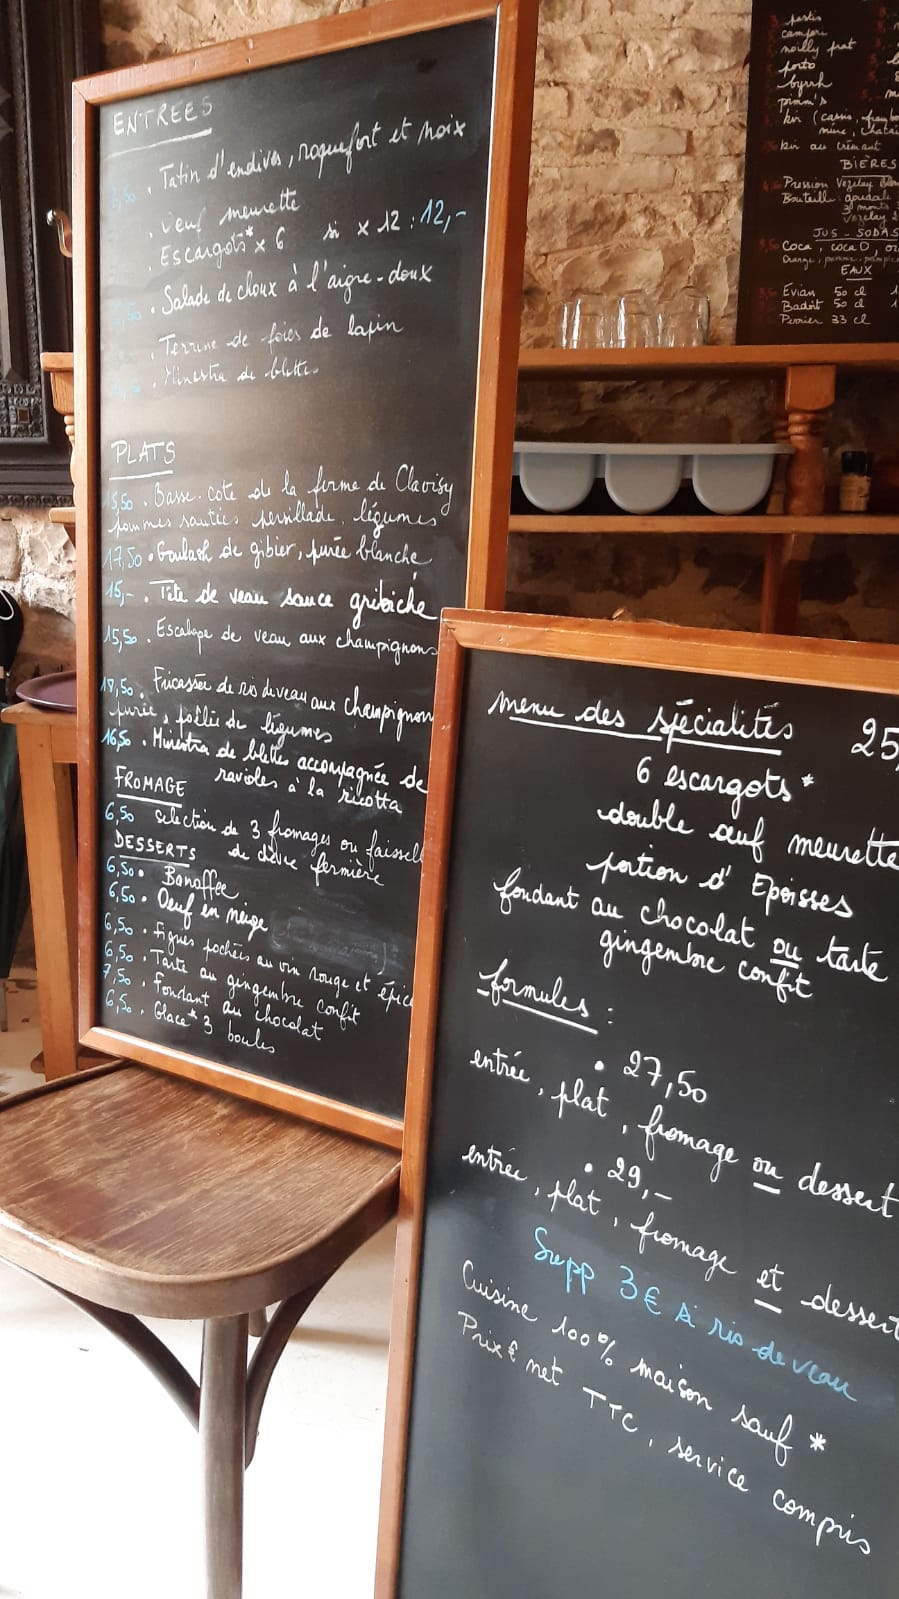 ENTREES
Tatin d'endives, roquefort et noix
oeuf meurette
Escargots* x 6 si x 12 : 12,-
Salade de choux à l'aigre-doux
Terrine de foies de lapin
Minestra de blettes
PLATS
15,50 . Basse-cote de la ferme de Clavisy
pommes sautées persillade, légumes
17,50 . Goulash de gibier, purée blanche
15,- . Tête de veau sauce gribiche
15,50 . Escalope de veau aux champignons
18,50 . Fricassée de ris de veau aux champignon
purée, poêlée de légumes
16,50 . Minestra de blettes accompagnée de
ravioles à la ricotta
FROMAGE
6,50 selection de 3 fromages ou faissell
de chèvre fermière
DESSERTS
6,50 . Banoffee
6,50 . Oeuf en neige
6,50 . Figues pochées au vin rouge et épice
6,50 . Tarte au gingembre confit
7,50 . Fondant au chocolat
6,50 . Glace* 3 boules
menu des spécialités 25,
6 escargots*
double œuf meurette
portion d'Epoisses
fondant au chocolat ou tarte
gingembre confit
formules :
• 27,50
entrée, plat, fromage ou dessert
• 29,-
entrée, plat, fromage et dessert
Supp 3€ si ris de veau
Cuisine 100% maison sauf *
Prix € net TTC, service compris
pastis
campari
noilly prat
porto
byrrh
pimm's
kir (cassis, fram
mûre, chatai
kir au crémant
BIÈRES
Pression Vezelay
Bouteille : goudale
3 monts
Vezelay
JUS - SODAS
Coca, coca 0, or
Orange, pomme, pample
EAUX
Evian 50 cl
Badoit 50 cl
Perrier 33 cl